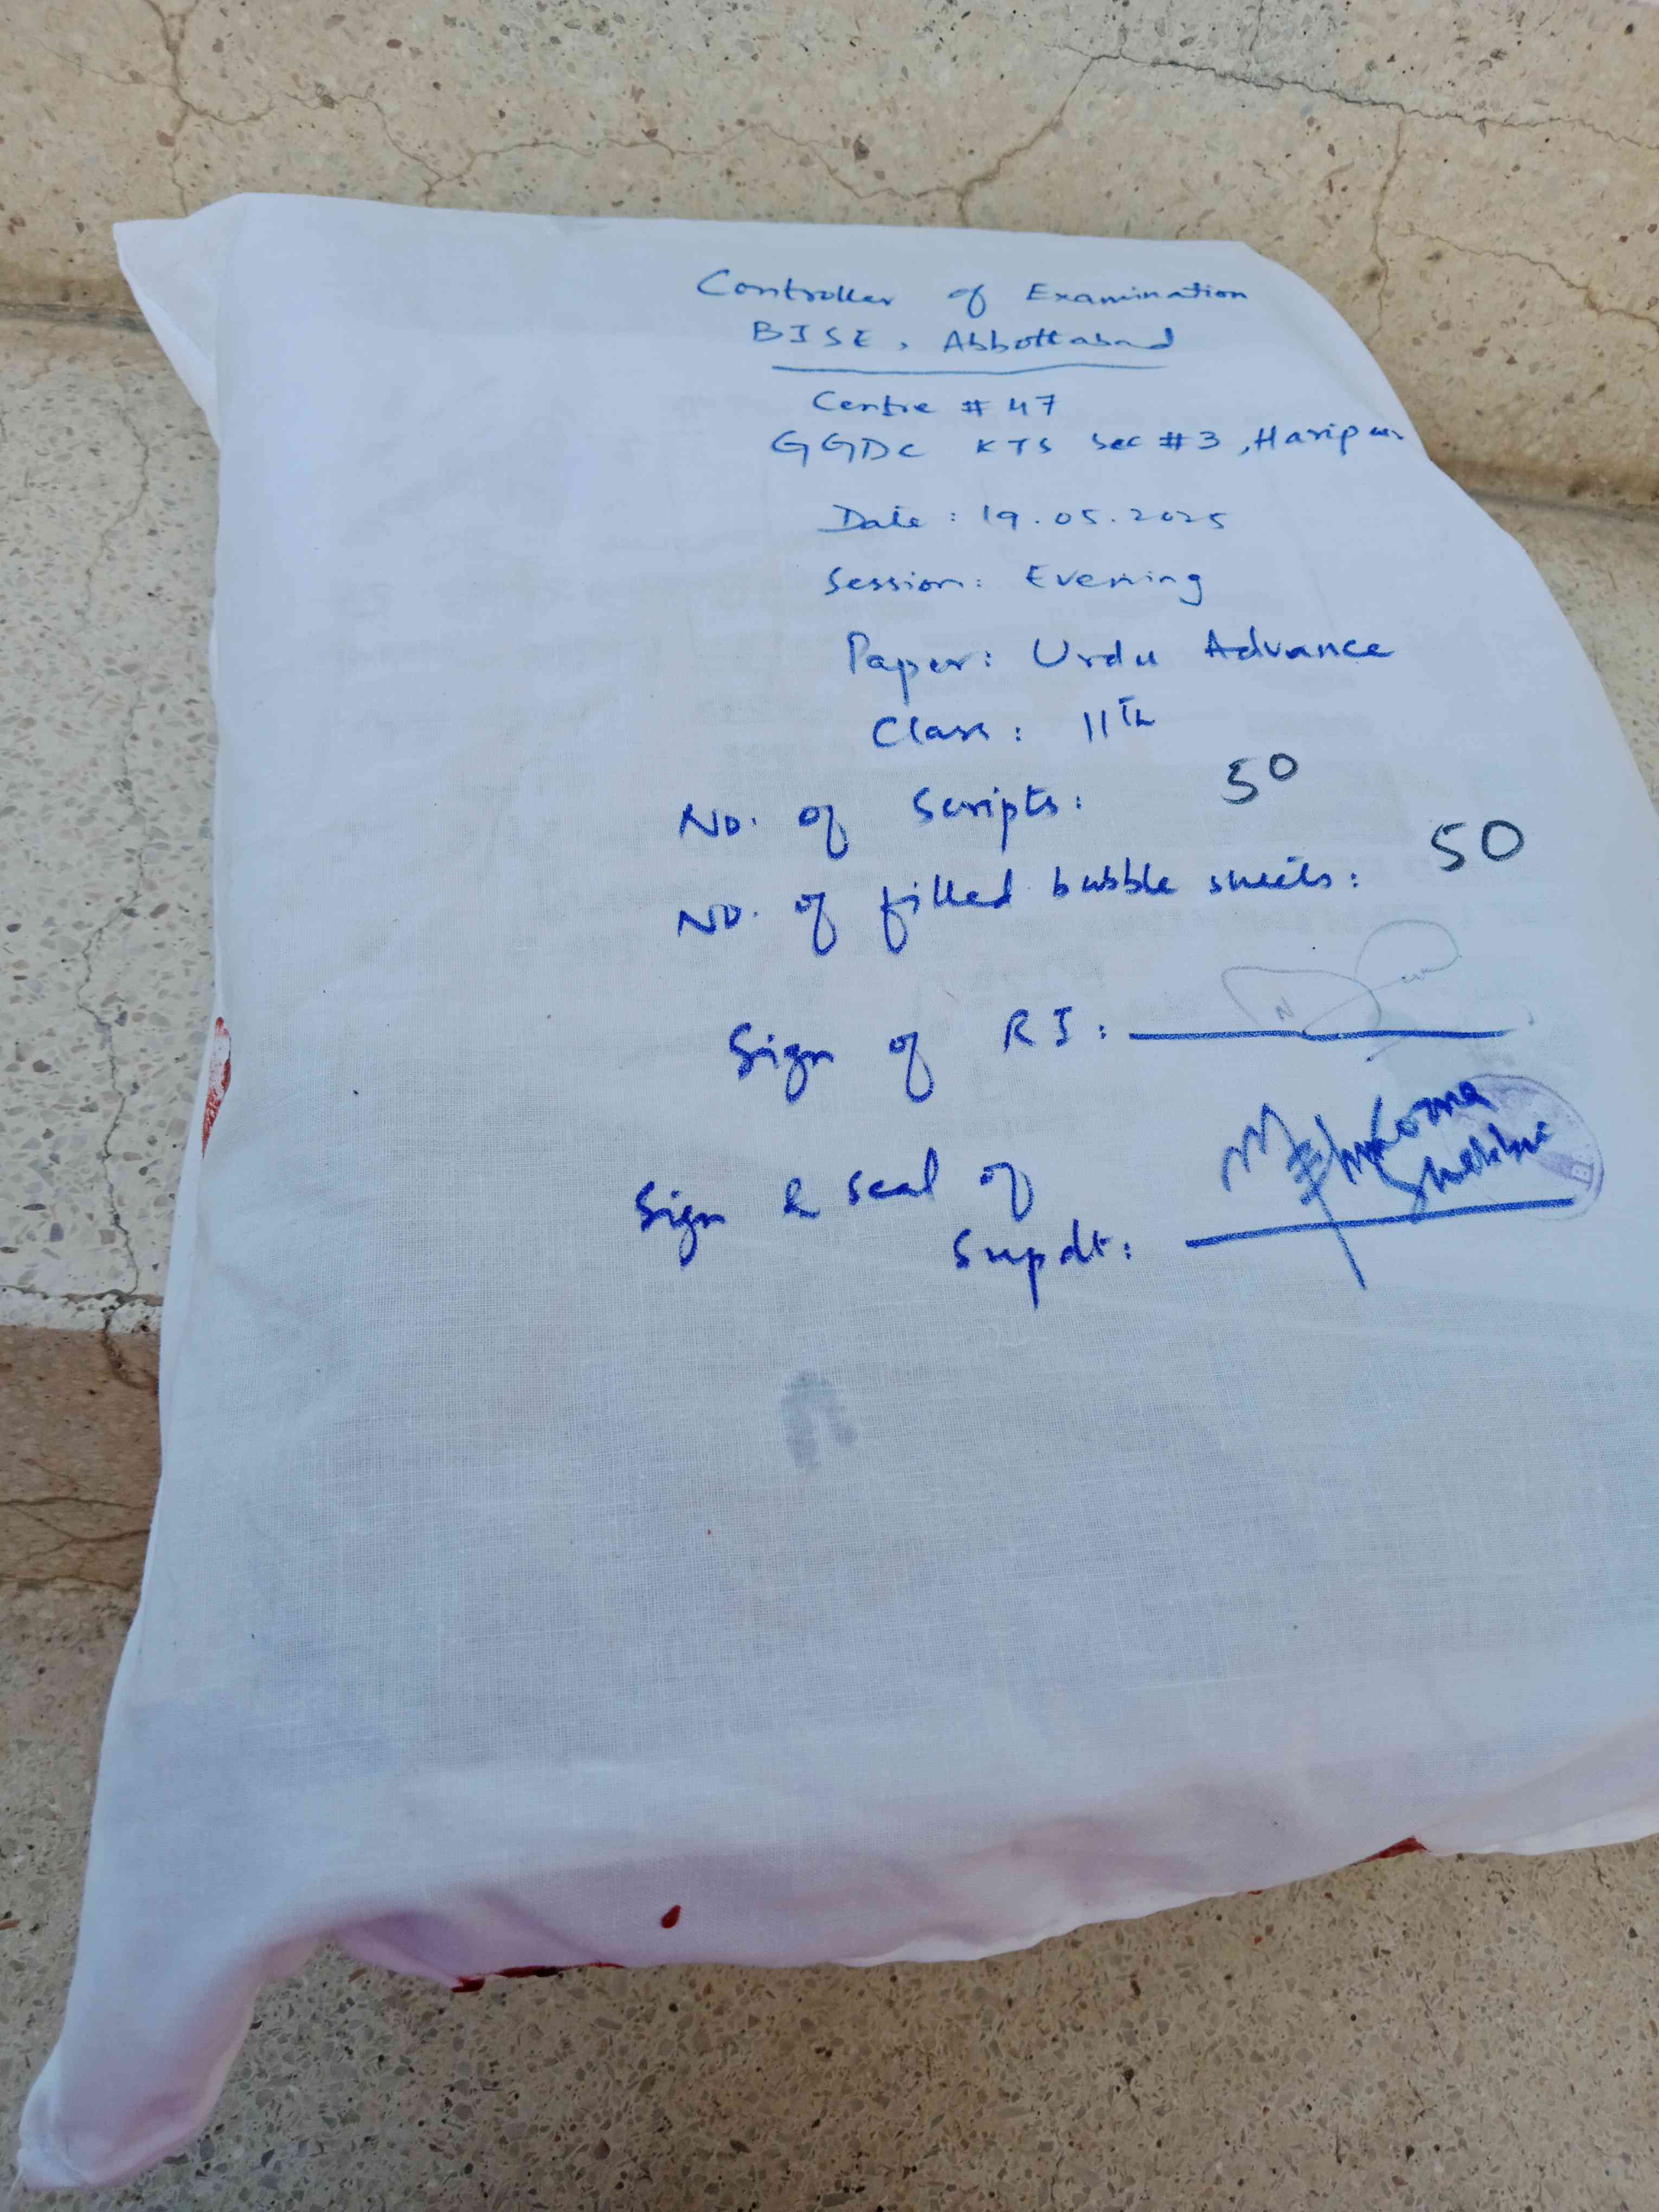 Controller of Examination
BISE, Abbottabad
Centre # 47
GGDC KTS Sec #3, Haripur
Date: 19.05.2025
Session: Evening
Paper: Urdu Advance
Class: 11th
No. of Scripts: 50
No. of filled bubble sheets: 50
Sign of RI:
Sign & seal of
Supdt: